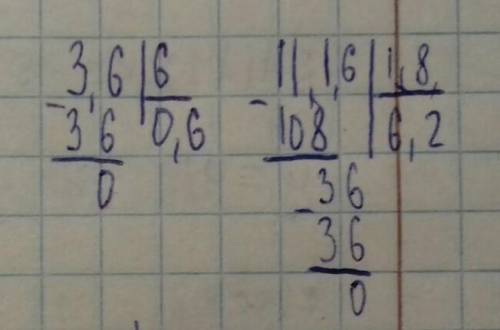 3,6 | 6
- 36 | 0,6
0
11,1,6 | 1,8,
- 108 | 6,2
- 36
36
0